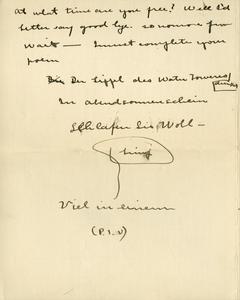 at what time are you free? Well I'd
better say good bye. so
wait — I must complete your
poem
Der Gippel des Wasser Toweres
In abendsonnenschein
Schlafen Sie Wohl —
Viel in einem
(P.S.V)